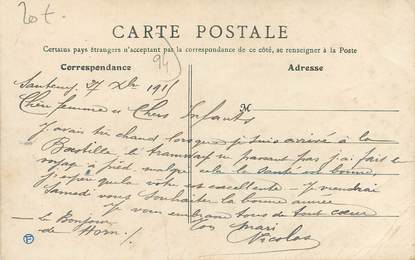 20t.
CARTE POSTALE
Certains pays étrangers n'acceptant pas la correspondance de ce côté, se renseigner à la Poste
94
Correspondance
Adresse
Santeny 27 Xbre 1915
Chère femme et Chers Enfants
M
J'avais très chaud lorsque je suis arrivé à la
Bastille le tramway ne passant pas j'ai fait le
voyage à pied, malgré cela la santé est bonne,
j'espère que la vôtre est excellente - Je viendrai
Samedi vous souhaiter la bonne année
Je vous embrasse tous de tout cœur
Ton Mari
Nicolas
Le Bonjour
de